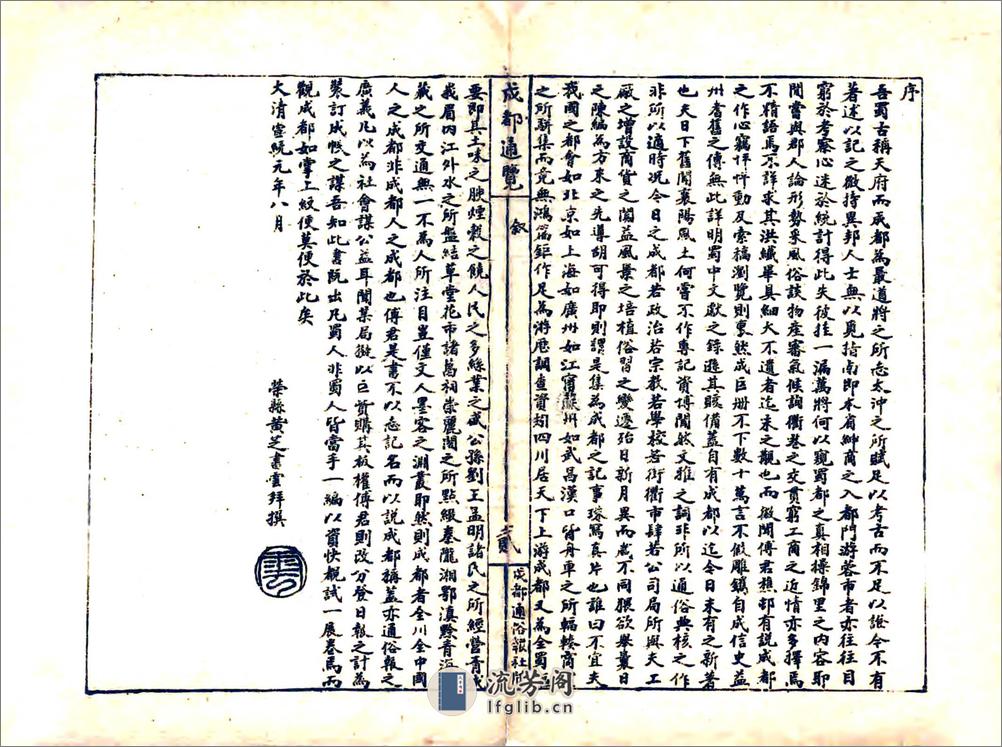 序
吾蜀古稱天府而成都為最道將之所志太沖之所賦足以考古而不足以證今不有
著述以記之微持異邦人士無以覓指南即本省紳商之入都門游蓉市者亦往往目
窮於考察心迷於統計得此失彼挂一漏萬將何以窺蜀都之真相操錦里之內容耶
聞嘗與郡人論形勢采風俗談物產審氣候詢衢巷之交貫窮工商之近情亦多擇焉
不精語焉不詳求其洪纖畢具細大不遺者迄未之覯也而微聞傅君樵邨有說成都
之作心竊怦怦動及索稿瀏覽則裒然成巨冊不下數十萬言不假雕鐫自成信史益
州耆舊之傳無此詳明蜀中文獻之錄遜其賅備蓋自有成都以迄今日未有之新著
也夫日下舊聞襄陽風土何嘗不作專記資博聞然文雅之詞非所以通俗典核之作
非所以適時況今日之成都若政治若宗教若學校若街衢市肆若公司局所與夫工
廠之增設商貨之闐益風景之培植俗習之變遷殆日新月異而歲不同猥欲舉曩日
之陳編為方來之先導胡可得耶則謂是集為成都之記事珠寫真片也誰曰不宜夫
我國之都會如北京如上海如廣州如江寧蘇州如武昌漢口皆舟車之所輻輳商
之所駢集而竟無鴻篇鉅作足為游歷調查資矧四川居天下上游成都又為全蜀
成都通覽
敘
貳
成都通俗報社印
要即其土味之腴煙穀之饒人民之多絲業之盛公孫劉王孟明諸氏之所經營青
峩眉內江外水之所盤結草堂花市諸葛祠崇麗閣之所點綴秦隴湘鄂滇黔青海
藏之所交通無一不為人所注目豈僅文人墨客之淵叢耶然則成都者全川全中國
人之成都非成都人之成都也傅君是書不以志記名而以說成都稱蓋亦通俗報之
廣義凡以為社會謀公益耳聞某局擬以巨貲購其板權傅君則改分登日報之計為
裝訂成帙之謀吾知此書既出凡蜀人非蜀人皆當手一編以資快覩試一展卷焉而
觀成都如掌上紋便莫便於此矣
大清宣統元年八月
榮縣黃芝書雲拜撰
雲
流芳阁
lfglib.cn